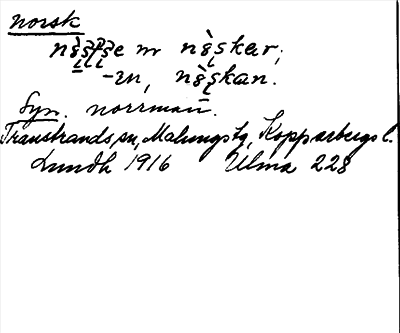 norsk
nr
-en,
Syn. norrman.
Transtrands sn, Malungs tg, Kopparbergs l.
Lundh 1916 Ulma 228